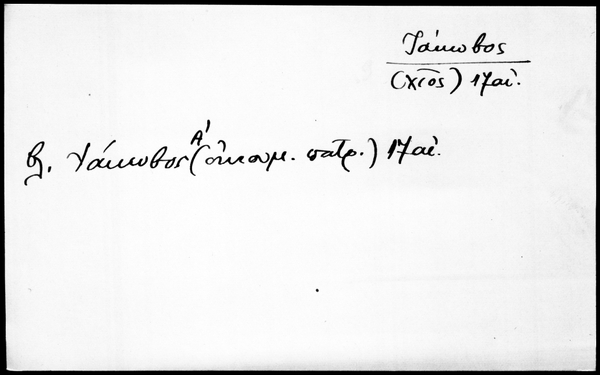 Ἰάκωβος
(Χῖος) 17 αἰ.
βλ. Ἰάκωβος Α' (οἰκουμ. πατρ.) 17 αἰ.